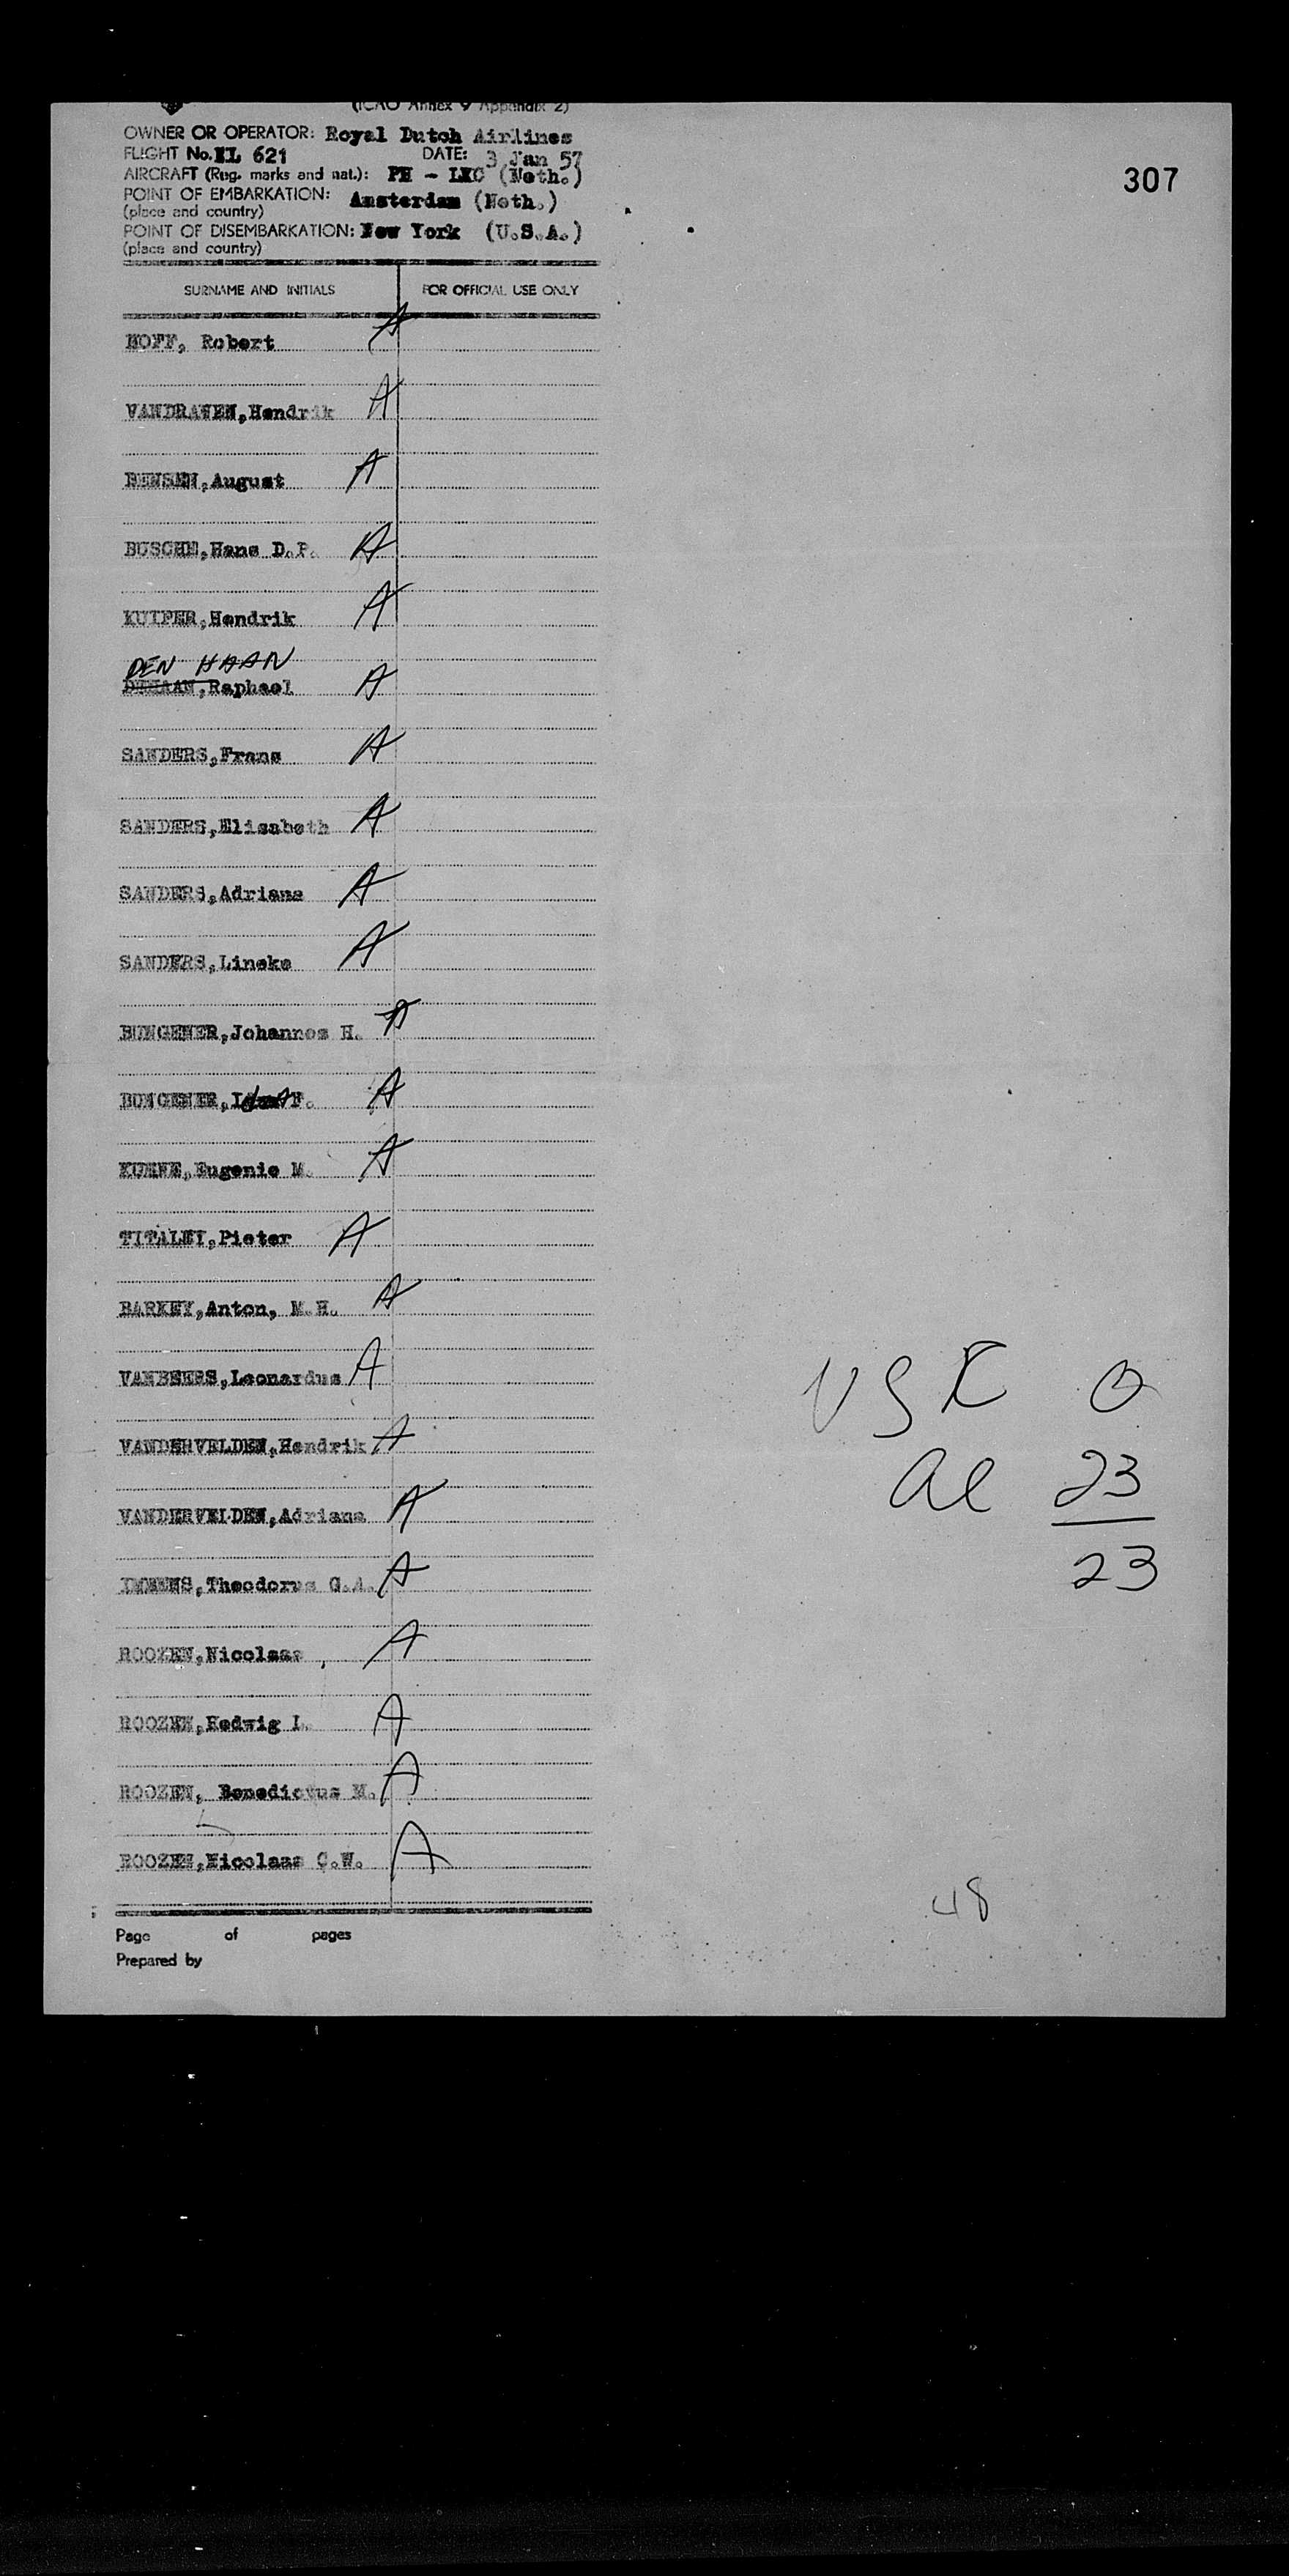 (ICAO Annex 9 Appendix 2)
OWNER OR OPERATOR: Royal Dutch Airlines
FLIGHT No. KL 621 DATE: 3 Jan 57
307
AIRCRAFT (Reg. marks and nat.): PH - LKC (Neth.)
POINT OF EMBARKATION: Amsterdam (Neth.)
(place and country)
POINT OF DISEMBARKATION: New York (U.S.A.)
(place and country)
SURNAME AND INITIALS FOR OFFICIAL USE ONLY
HOFF, Robert A
VANDRAVEN,Hendrik A
BENSEN,August A
BUSCHE,Hans D.P. A
KUIPER,Hendrik A
DEN HAAN
DEHAAN,Raphael A
SANDERS,Frans A
SANDERS,Elisabeth A
SANDERS,Adriana A
SANDERS,Lineke A
BUNGENER,Johannes H. A
BUNGENER, F. A
KUHNE,Eugenie M. A
TITALEY,Pieter A
BARKEY,Anton, M.H. A
VANBEERS,Leonardus A
VANDERVELDEN,Hendrik A
VANDERVELDEN,Adriana A
Theodorus G.A. A
ROOZEN,Nicolaas A
ROOZEN,Hedwig I. A
ROOZEN, Benedictus M. A
ROOZEN,Nicolaas C.W. A
0
al 23
23
48
Page of pages
Prepared by